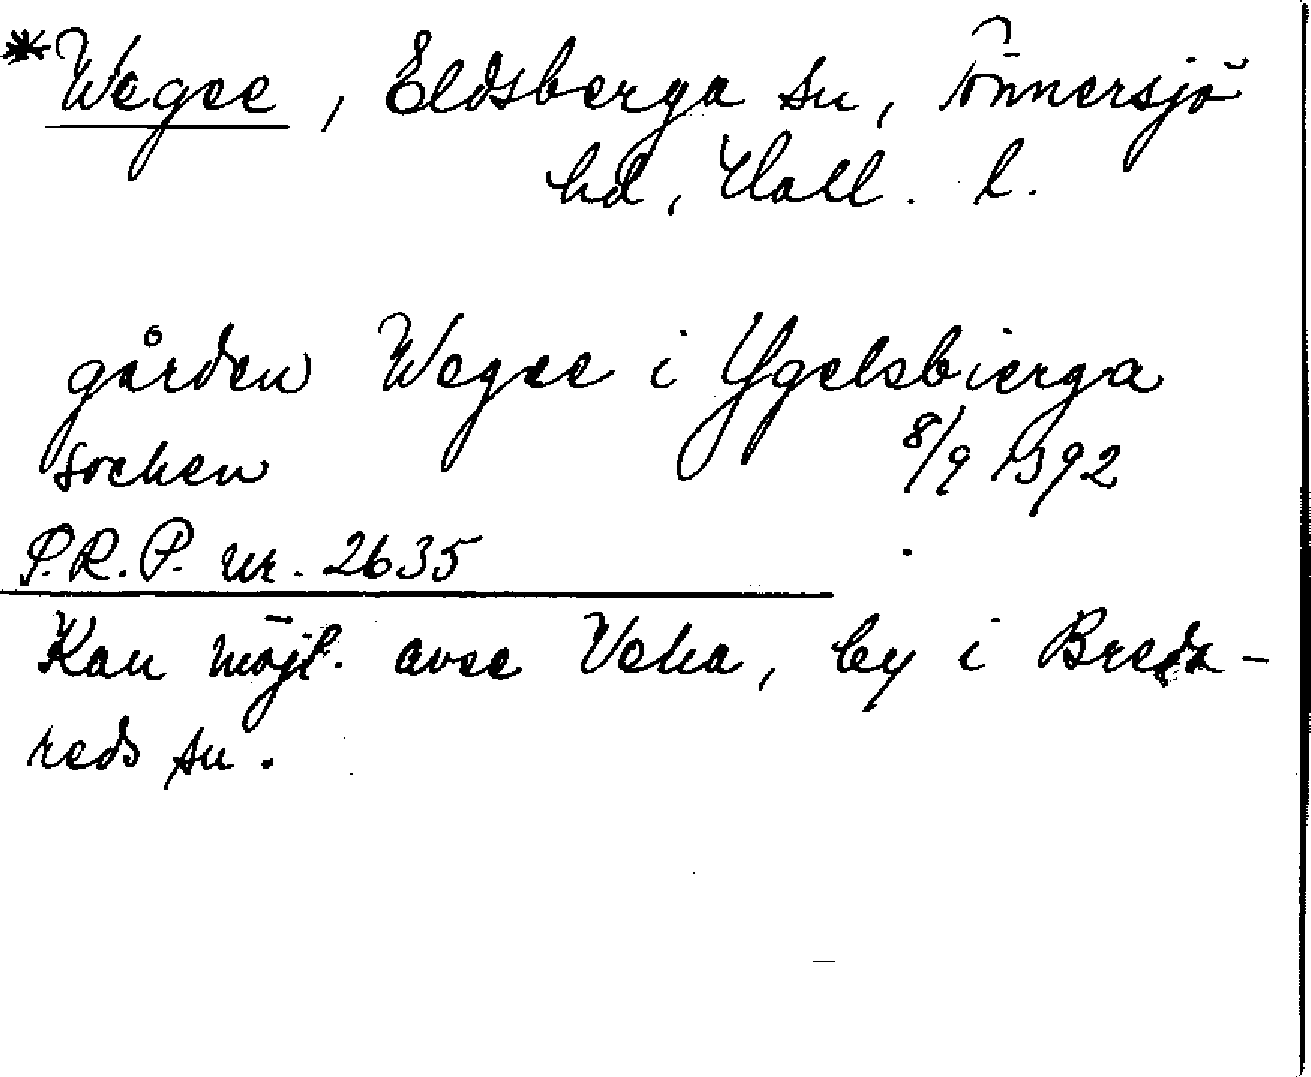 *Wegee, Eldsberga sn, Tönnersjö
hd, Hall. l.
gården Wegee i Ygelsbierga
socken 8/9 1392
S.R.P. nr. 2635
Kan möjl. avse Veka, by i Breda-
reds sn.